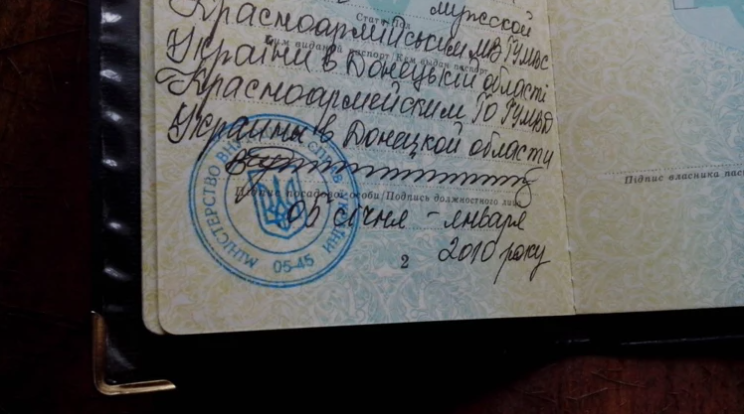 мужской
Стать/Пол
Красноармійським МВ ГУМВС
Ким виданий паспорт/Кем выдан паспорт
України в Донецькій області
Красноармейским ГО ГУМВД
Украины в Донецкой области
Підпис посадової особи/Подпись должностного лица
05 січня - января
2010 року
2
МІНІСТЕРСТВО ВНУТРІШНІХ СПРАВ УКРАЇНИ
05-45
Підпис власника пас